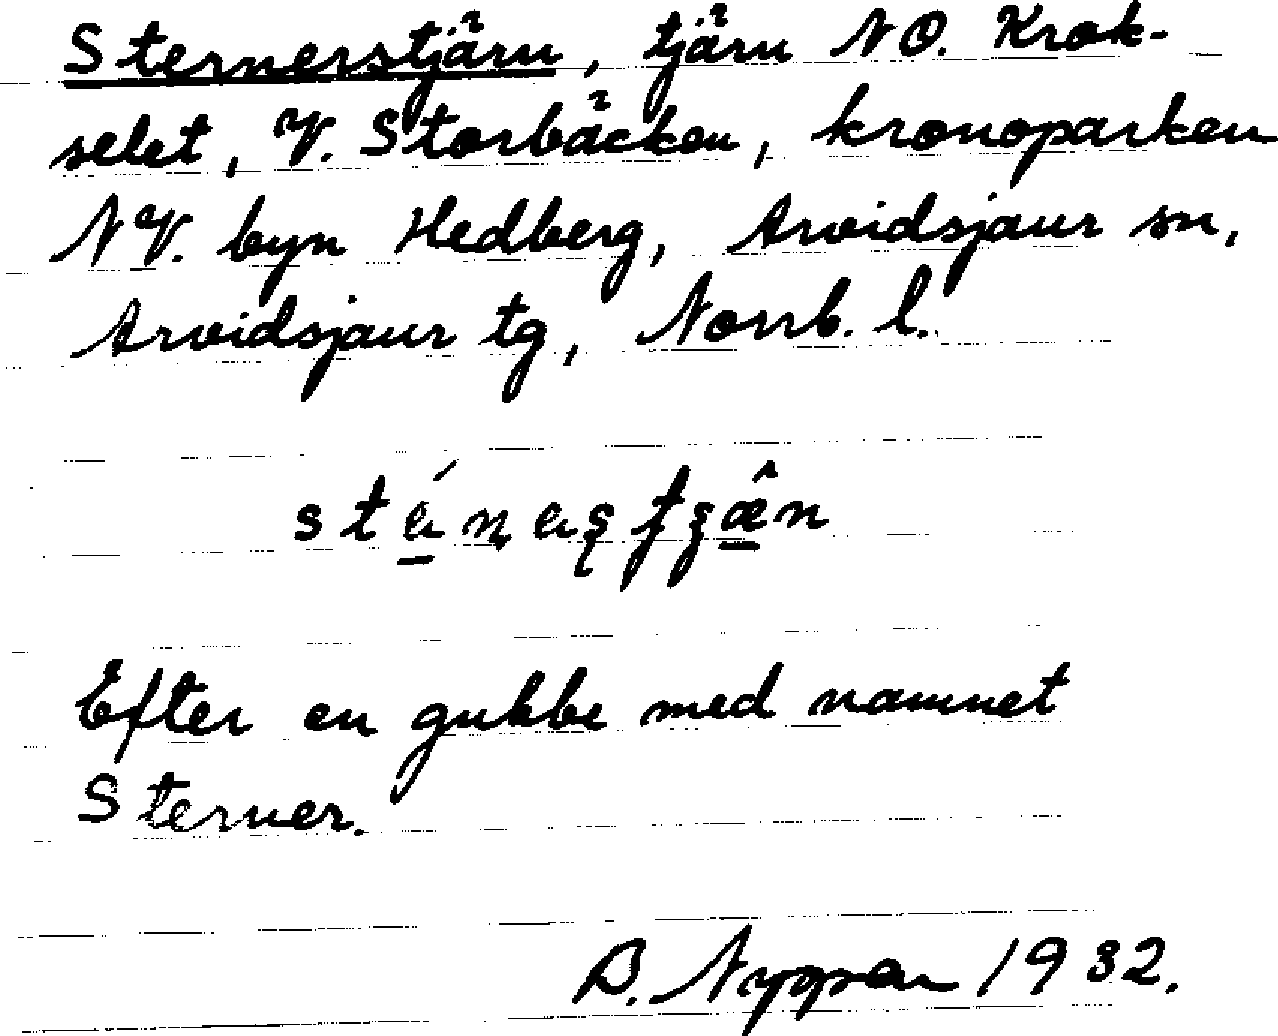 Sternerstjärn, tjärn NO. Krok-
selet, V. Storbäcken, kronoparken
NV. byn Hedberg, Arvidsjaur sn,
Arvidsjaur tg, Norrb. l.
Efter en gubbe med namnet
Sterner.
B. 1932.